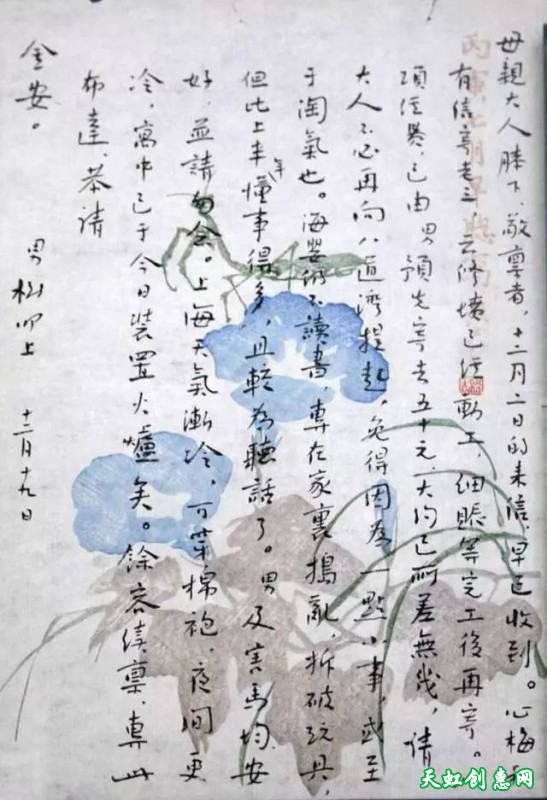 母親大人膝下,敬稟者,十二月二日的来信,早已收到。心梅叔
有信寄老三,云修墳已經動工,細賬等完工後再寄。
項經費,已由男預先寄去五十元,大约已所差無幾,請
大人不必再向八道灣提起,免得因为一點小事,或至
于淘氣也。海嬰仍不讀書,專在家裏搗亂,拆破玩具,
但此上半年懂事得多,且較为聽話了。男及害馬均安
好,並請勿念。上海天氣漸冷,可穿棉袍,夜間更
冷,寓中已于今日裝置火爐矣。餘容續稟,專此
布達,恭請
金安。
男樹叩上 十二月十九日
天虹创惠网